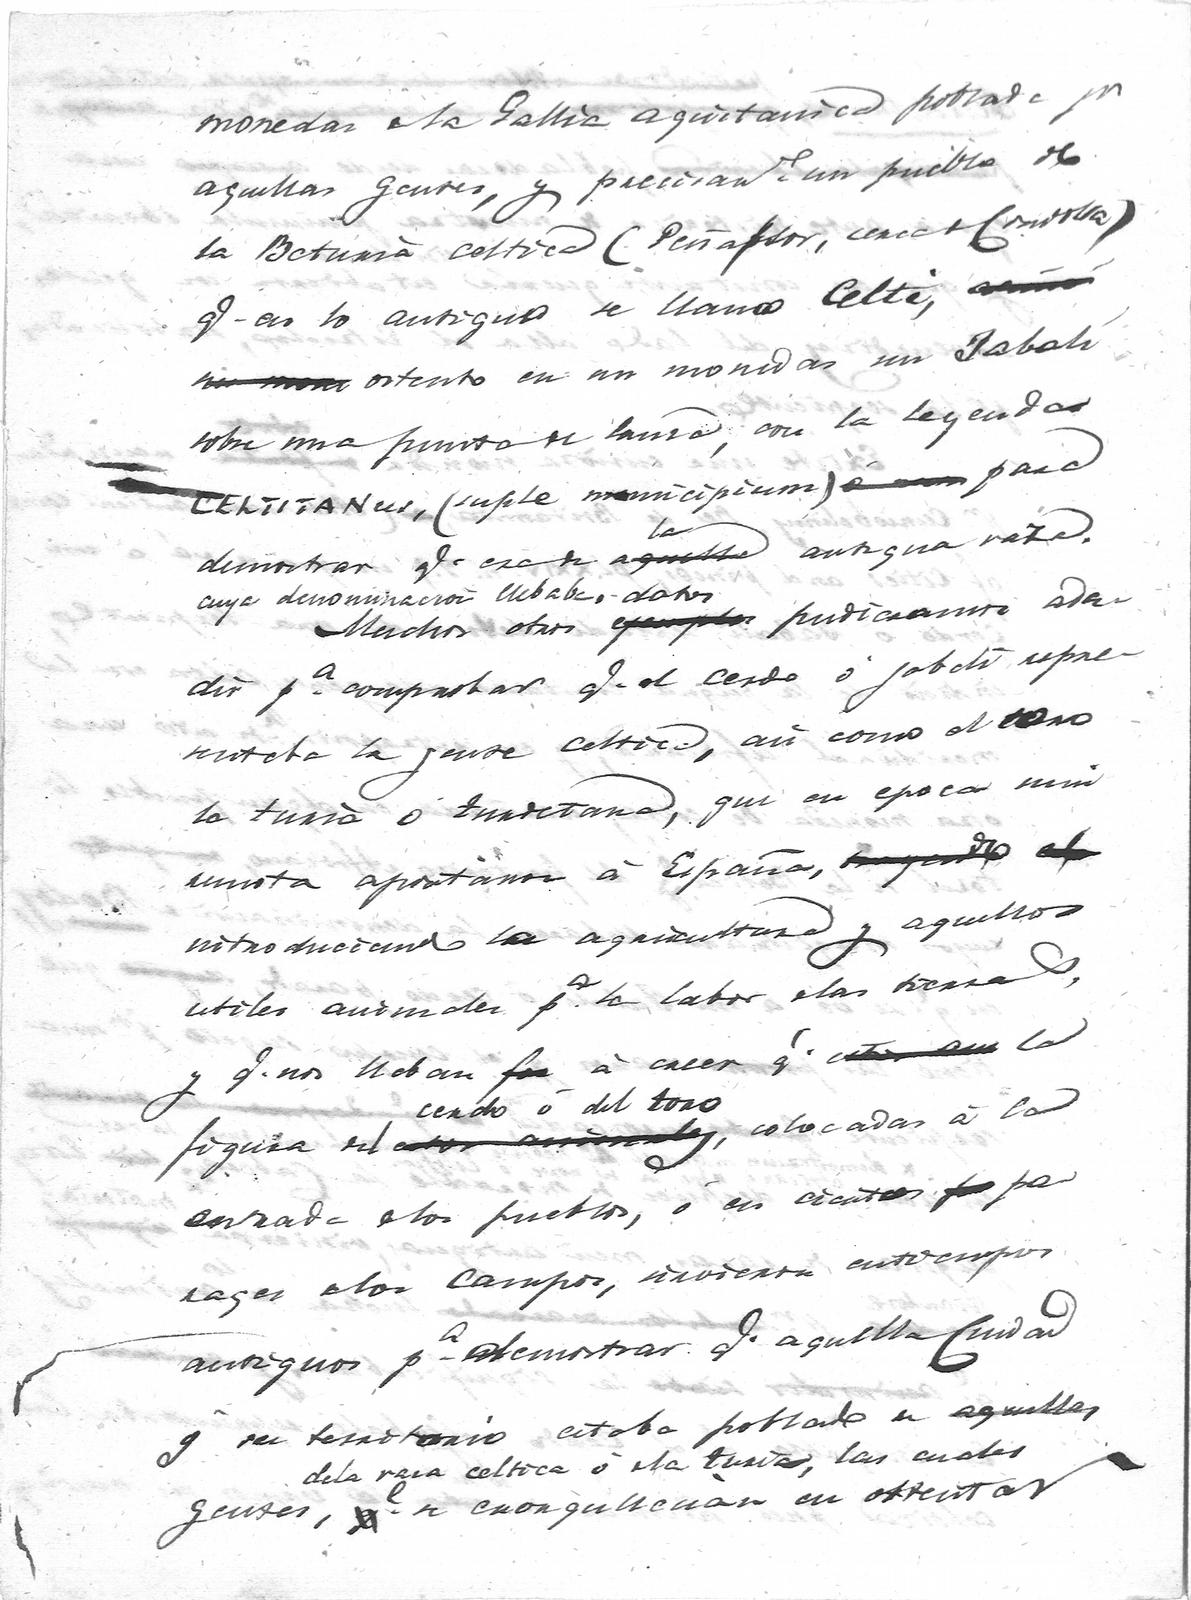 monedas de la Gallia aquitanica poblada pr
aquellas gentes, y precisamte un pueblo de
la Beturia celtica (Peñaflor, cerca de Cordoba)
qe en lo antiguo se llamó Celti,
ostentó en sus monedas un Jabalí
sobre una punta de lanza, con la leyenda
CELTITANus, (suple municipium) para
demostrar qe era de la antigua raza
cuya denominacion llebaba.
Muchos otros datos pudieramos aña-
dir pa comprobar qe el cerdo ó jabalí repre-
sentaba la gente celtica, asi como el toro
la turia ó turdetana, que en epoca mui
remota aportáron á España,
introduciendo la agricultura y aquellos
utiles animales pa la labor de las tierras,
y qe nos lleban á creer qe la
figura del cerdo ó del toro, colocadas á la
entrada de los pueblos, ó en ciertos pa-
rages de los campos, sirvieron en tiempos
antiguos pa demostrar qe aquella Ciudad
ó su territorio estaba poblado de aquellas
de la raza celtica ó de la turia, las cuales
gentes, se enorgullecian en ostentar